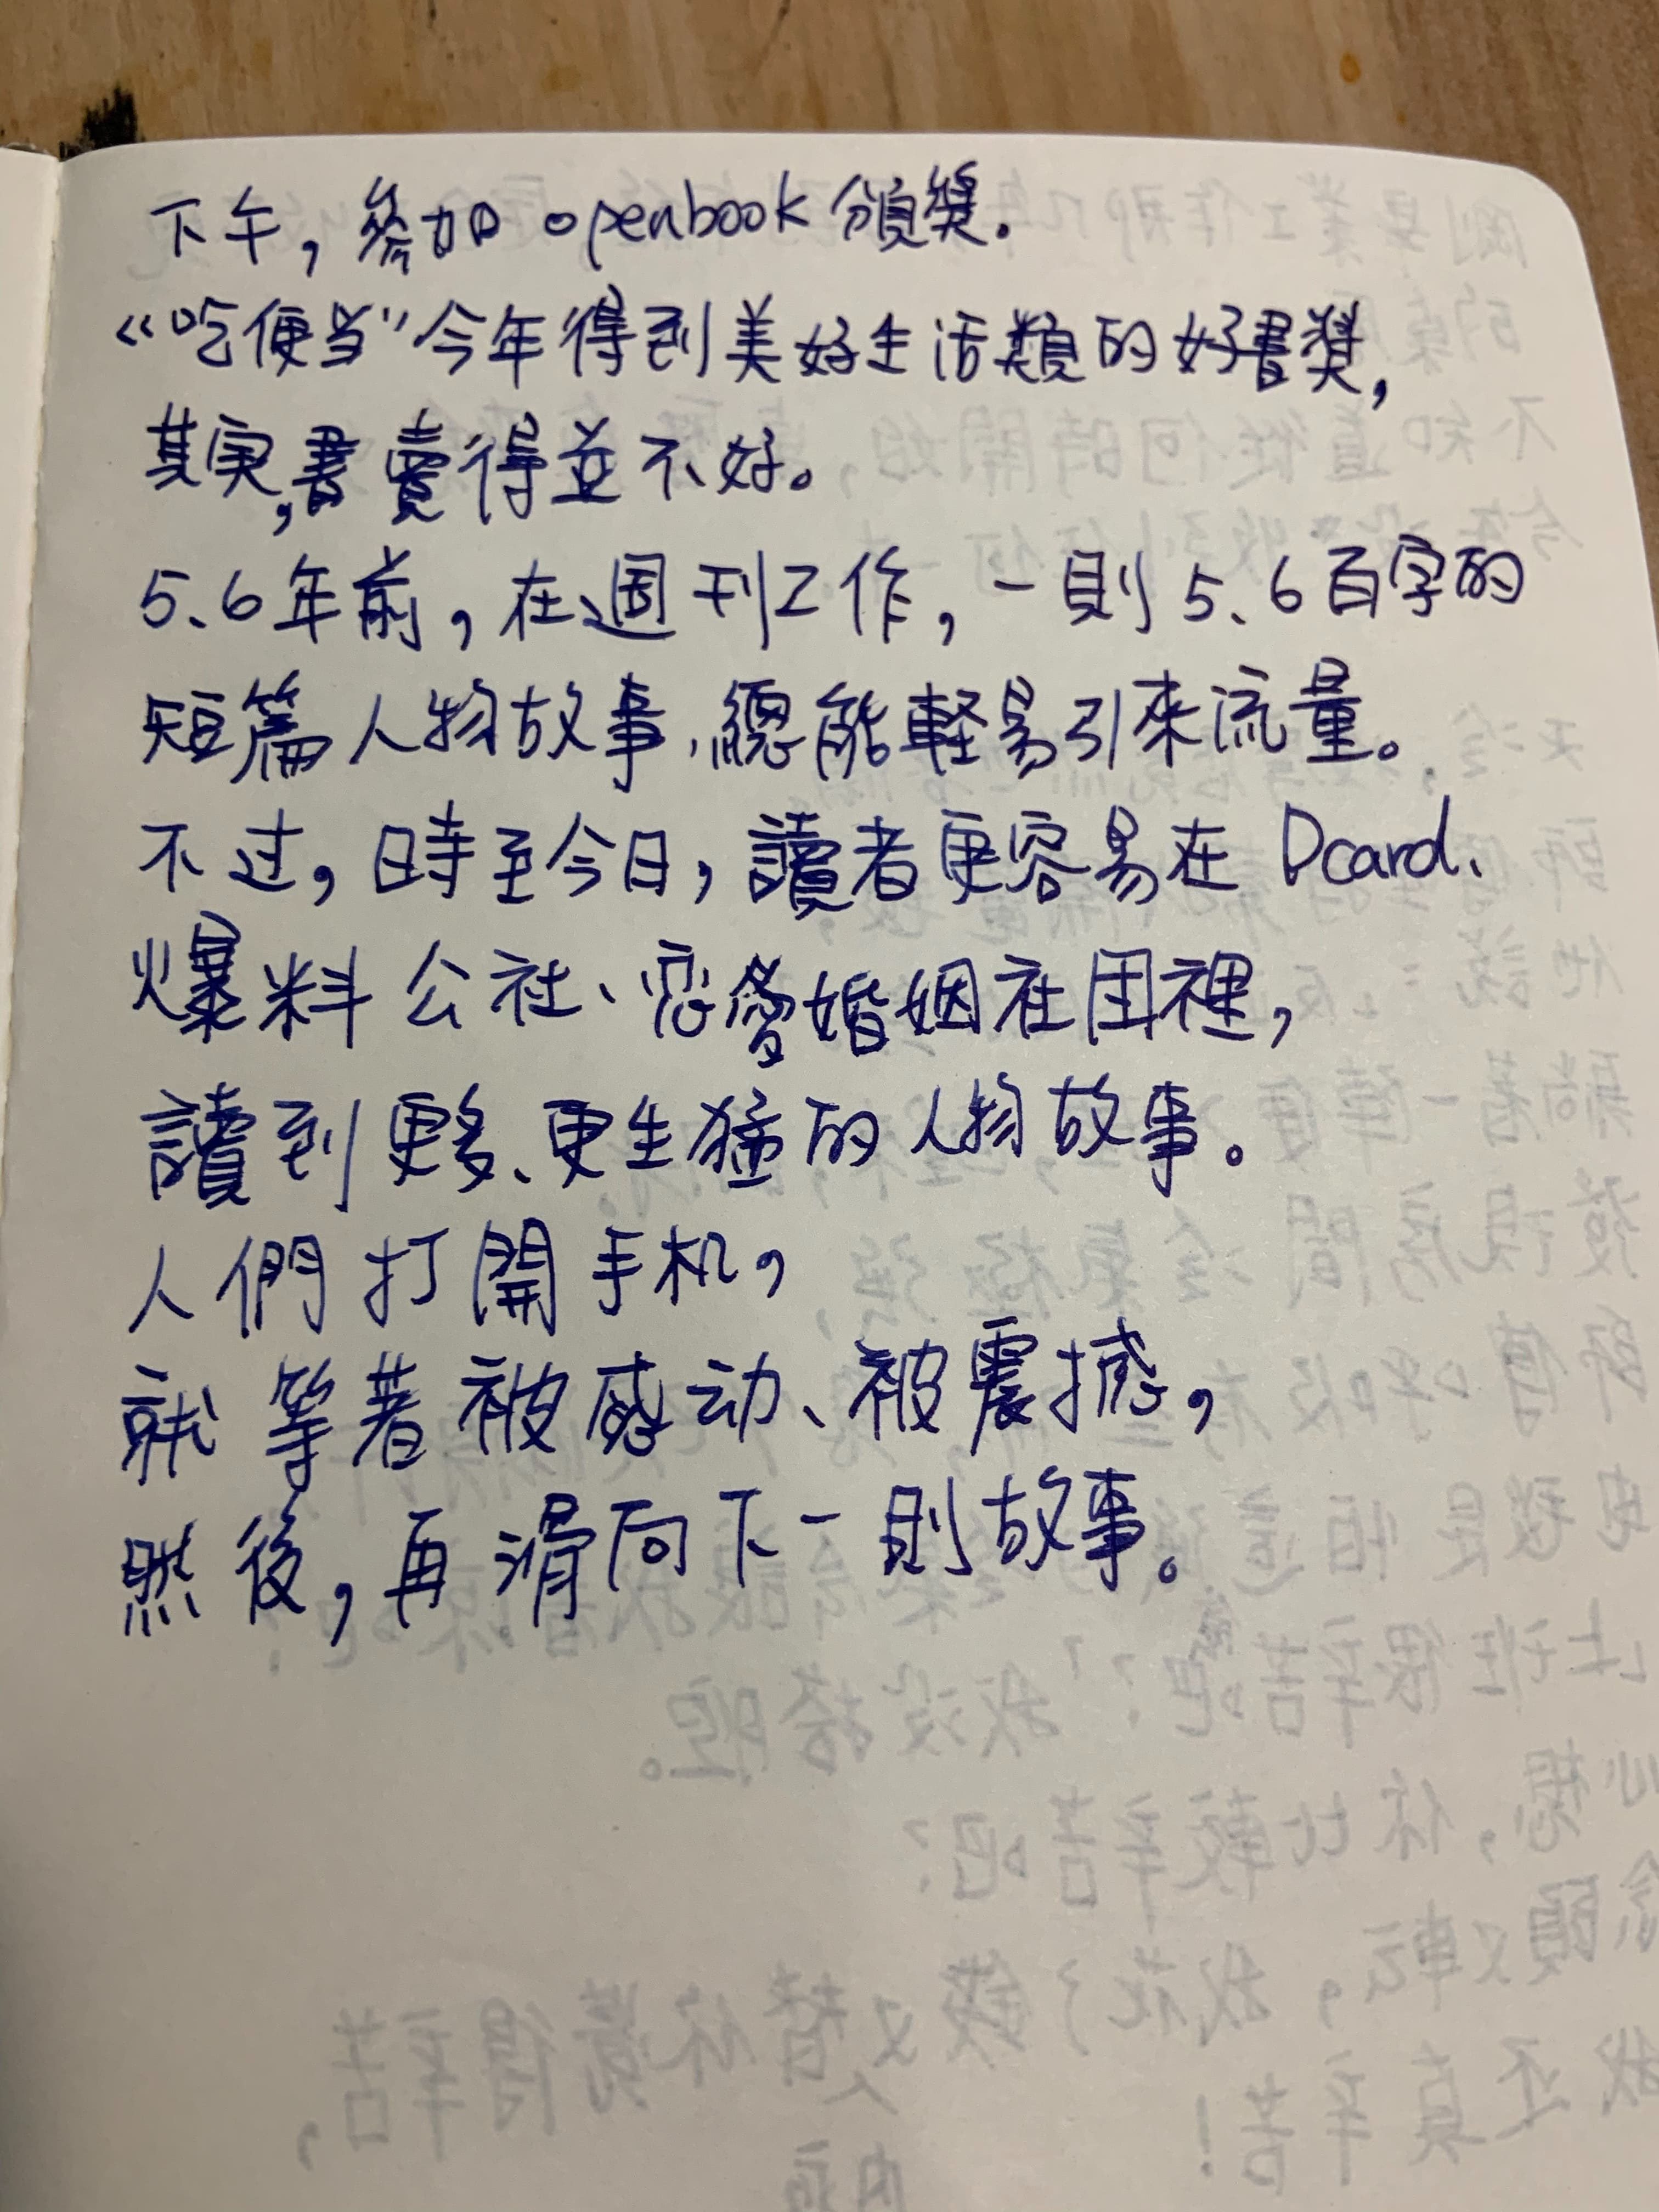 下午，參加 openbook 頒獎.
“吃便当”今年得到美好生活類的好書獎，
其実，書賣得並不好。
5、6年前，在週刊工作，一則5、6百字的
短篇人物故事，總能軽易引來流量。
不过，時至今日，讀者更容易在 Dcard、
爆料公社、恋愛婚姻社团裡，
讀到更多、更生猛的人物故事。
人們打開手机，
就等著被感动、被震撼，
然後，再滑向下一則故事。